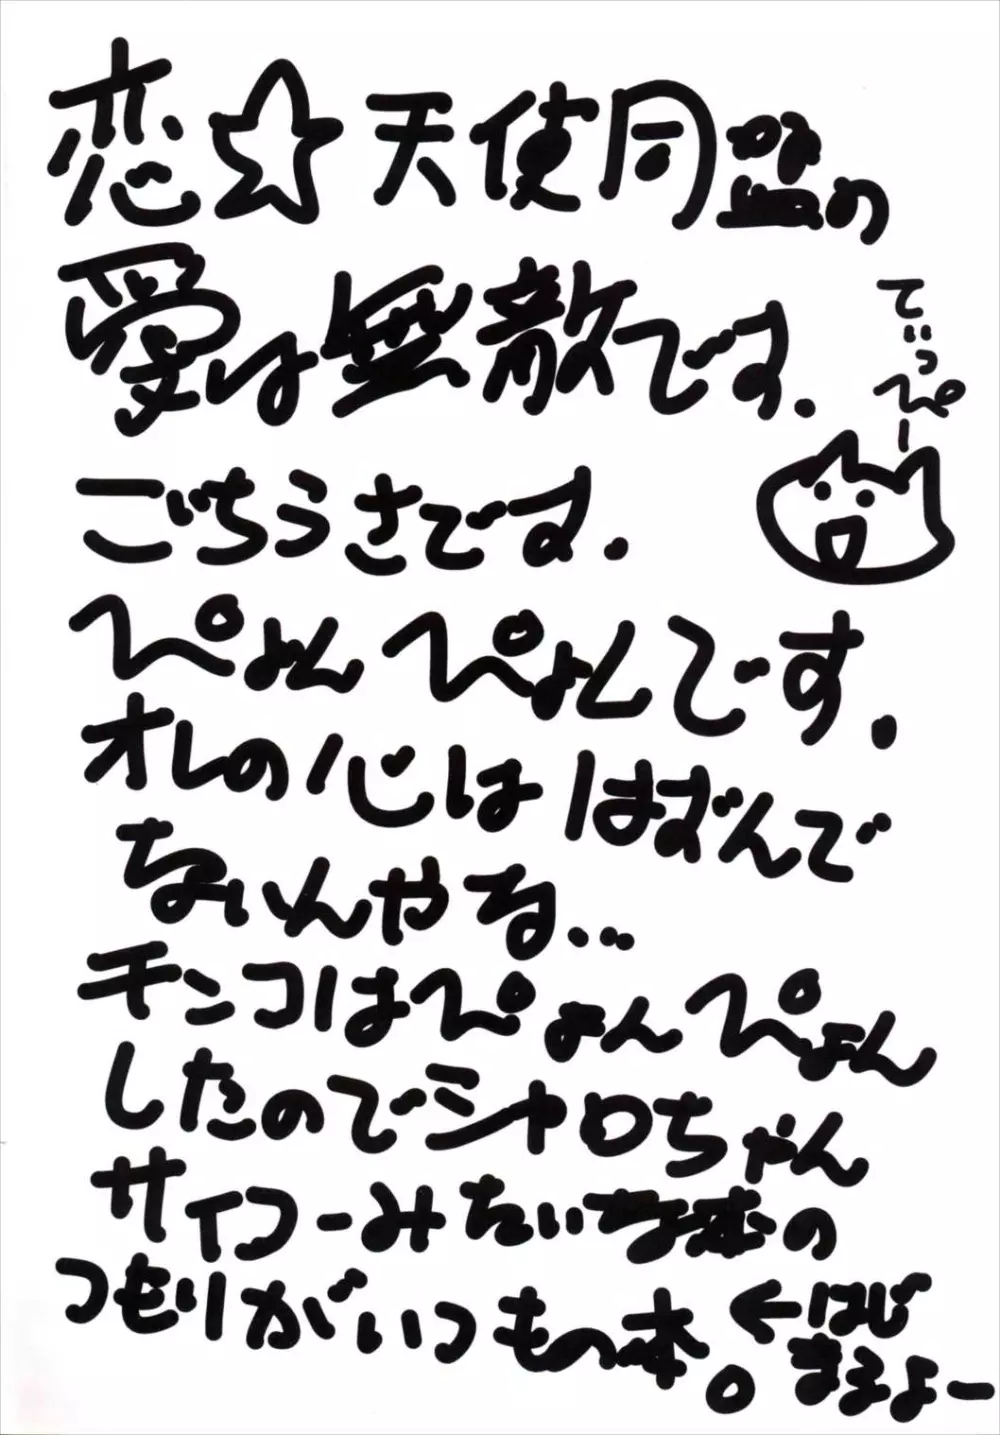 恋☆天使同盟の
愛は無敵です.
でぃっぴー
ごちうさです.
ぴょんぴょんです.
オレの心ははずんで
ないんやな...
チンコはぴょんぴょん
したのでシャロちゃん
サイコーみたいな本の
つもりがいつもの本。
←はじ
まるよー